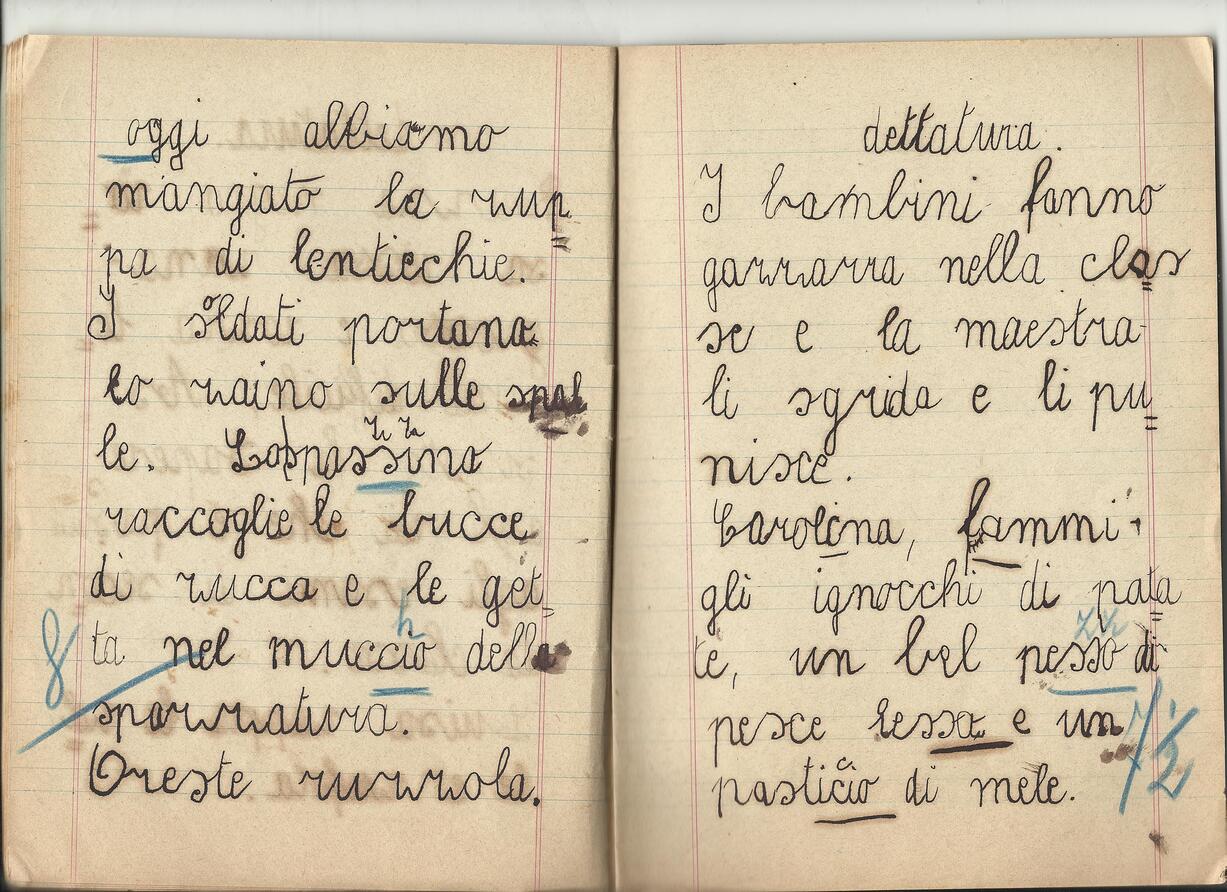 oggi abbiamo
mangiato la zup=
pa di lenticchie.
I soldati portano
lo zaino sulle spal
le. Lo spassino
raccoglie le bucce
di zucca e le get=
h
8 ta nel muccio della
spazzatura.
Oreste ruzzola.
dettatura.
I bambini fanno
gazzarra nella clas=
se e la maestra
li sgrida e li pu=
nisce.
Carolina, fammi
gli ignocchi di pata=
zz
te, un bel pesso di
pesce lessa e un 7 1/2
ci
pasticio di mele.